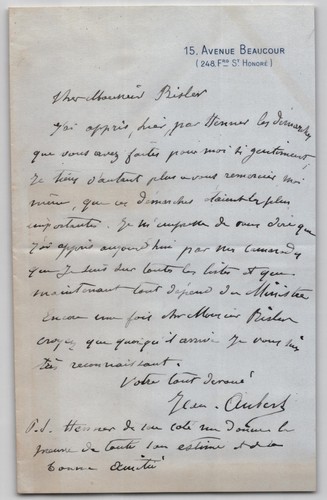 15, AVENUE BEAUCOUR
(248, Fg St HONORÉ)
Cher Monsieur Risler
J'ai appris, hier, par Henner les démarches
que vous avez faites pour moi si gentiment,
Je tiens d'autant plus a vous remercier moi
même, que ces démarches étaient les plus
importantes. Je m'empresse de vous dire que
J'ai appris aujourd'hui par mes camarades
que Je suis sur toutes les listes et que
maintenant tout dépend du Ministre
Encore une fois cher Monsieur Risler
croyez que quoiqu'il arrive Je vous suis
très reconnaissant.
Votre tout dévoué
Jean-Aubert
P.S. Henner de son coté me donne la
preuve de toute son estime et de sa
bonne amitié